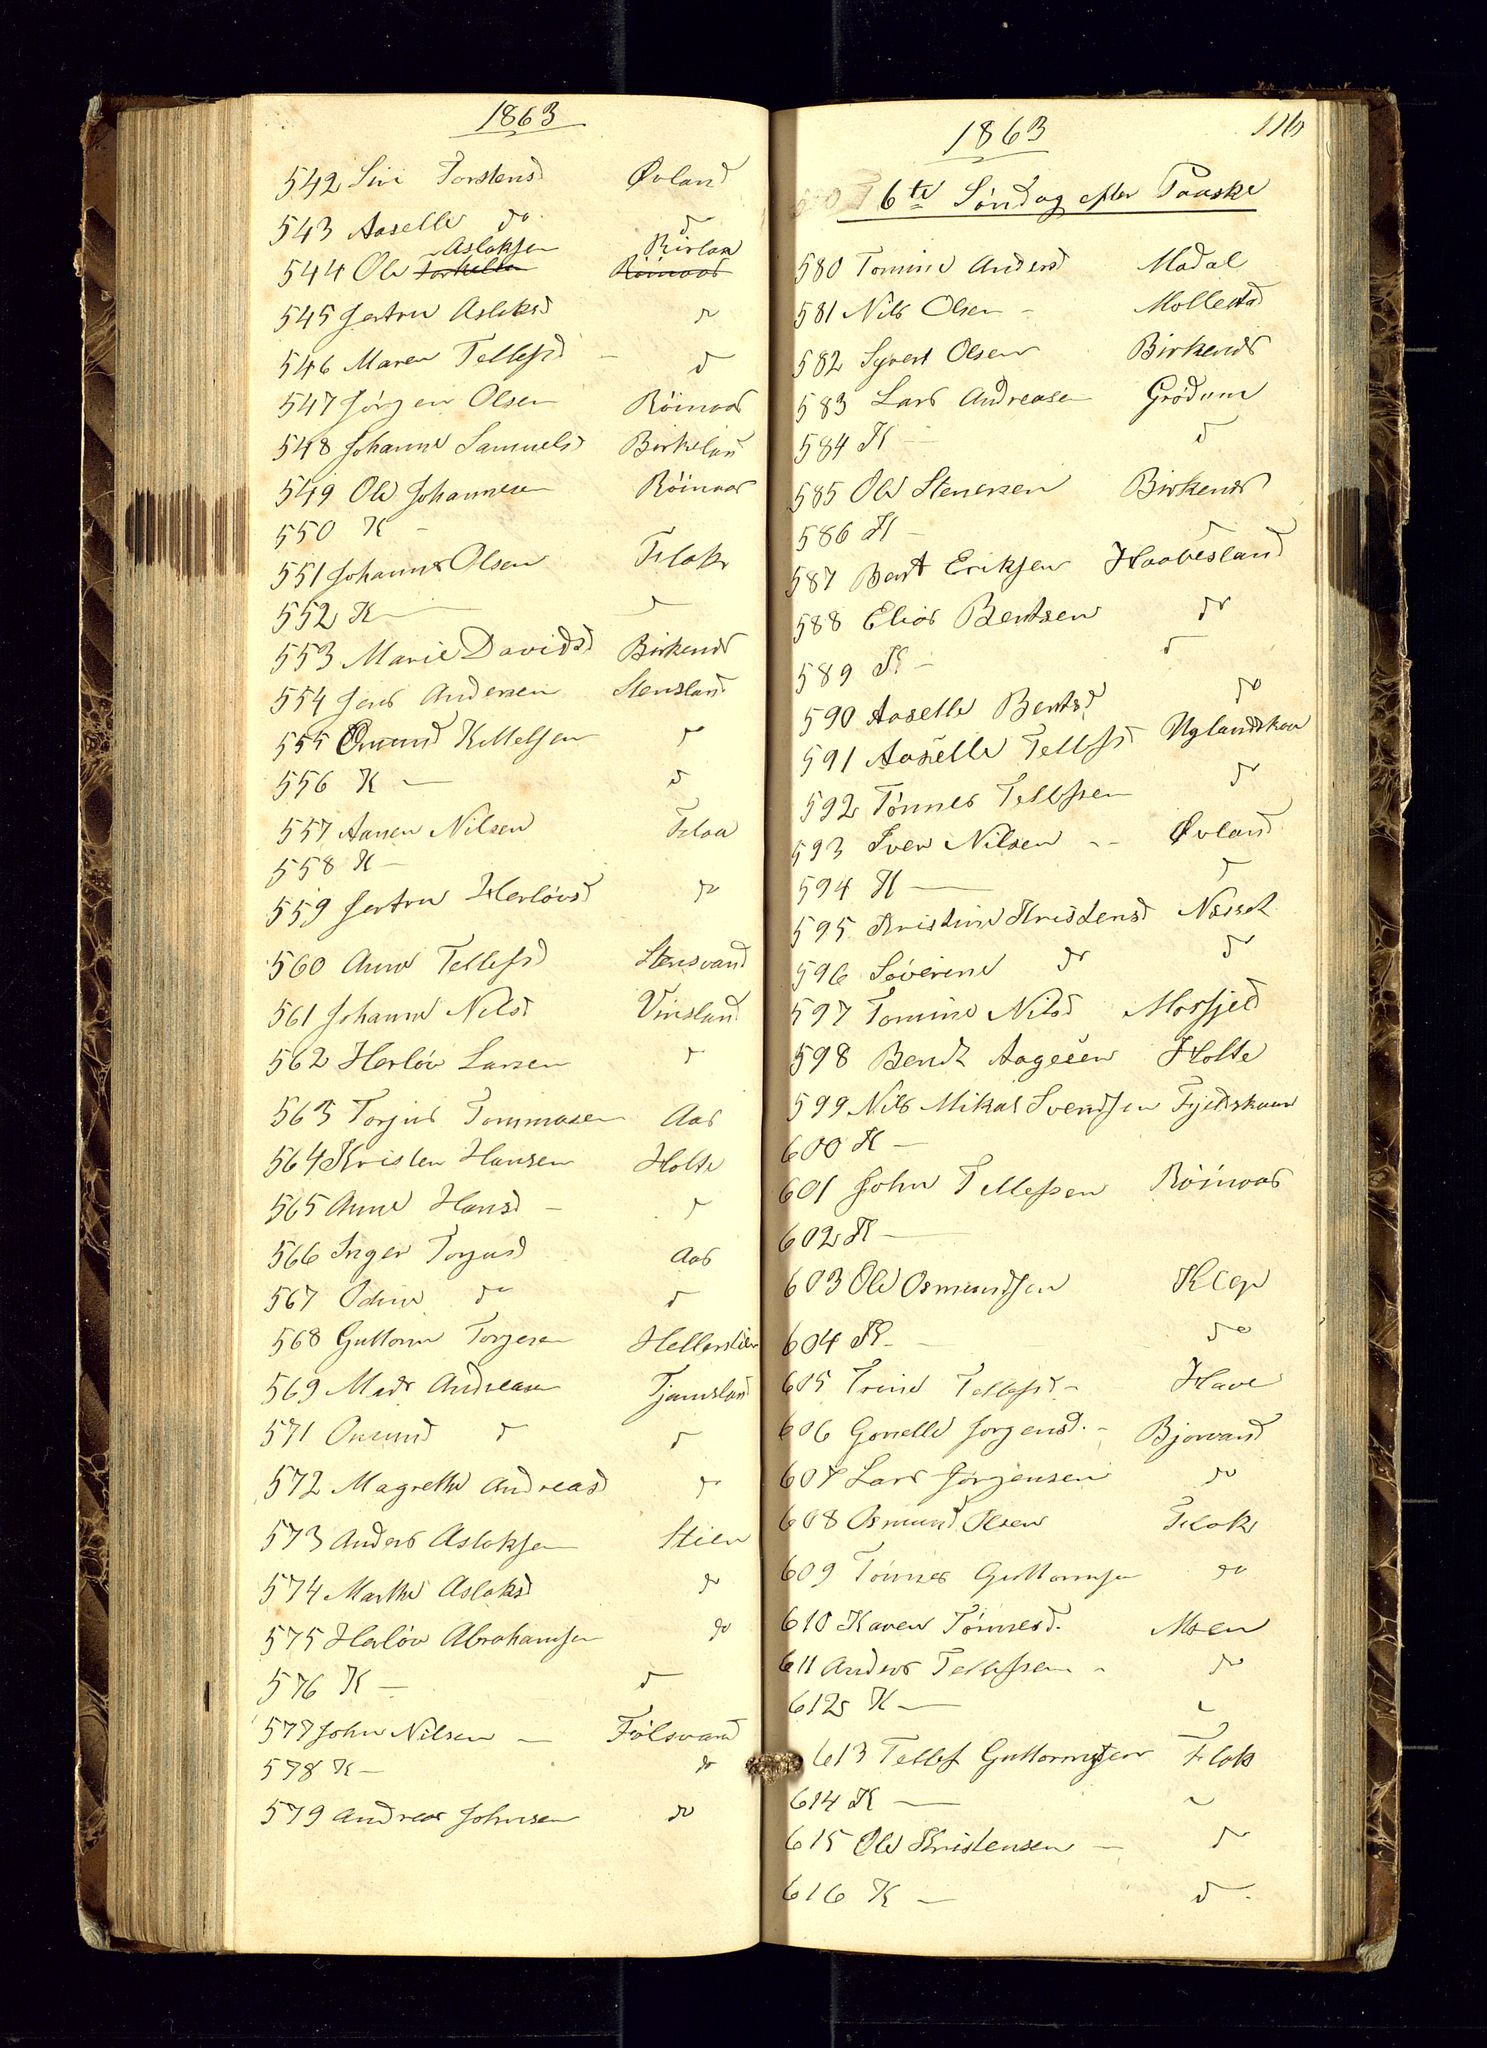 1863
542 Siri Torstensd Øvland
543 Aaselle do d
Asloksen Birlan
544 Ole Torkelsen Röinaas
545 Jertru Asloksd d
546 Maren Tellefsd - d
547 Jörgen Olsen Röinaas
548 Johanne Samuelsd Birkeland
549 Ole Johannesen Röinaas
550 K -
551 Johannes Olsen Flak
552 K — d
553 Marie Davidsd Birkenes
554 Jens Andersen Stensland
555 Omund Kittelsen d
556 K — d
557 Aanen Nilsen Flaa
558 K -
559 Jertru Herlövsd do
560 Anne Tellefsd Stensvand
561 Johanne Nilsd Vinsland
562 Herlöv Larsen d
563 Torjus Tommasen Aas
564 Kristen Hansen Holte
565 Anne Hansd - d
566 Inger Torjusd Aas
567 Odine do d
568 Guttorm Torjesen
569 Mads Andreasen Tjomsland
571 Omund d d
572 Magrethe Andreasd do
573 Anders Asloksen Stien
574 Marthe Asloksd do
575 Herlöv Abrahamsen do
576 K - d
577 John Nilsen - Fölsvand
578 K - do
579 Andreas Johnsen do
1863 116
6te Söndag efter Paaske
580 Tomine Andersd Modal
581 Nils Olsen - Mollestad
582 Syvert Olsen Birkenes
583 Lars Andreasen Grödum
584 K — d
585 Ole Stenersen Birkenes
586 K - d
587 Bent Eriksen Haabesland
588 Elias Bentsen do
589 K - d
590 Aaselle Bentsd do
591 Aaselle Tellefsd Uglandskaa
592 Tönnes Tellefsen do
593 Iver Nilsen - - Øvland
594 K — d
595 Kristine Kristensd Næset
596 Severine do do
597 Tomine Nilsd Mosfjed
598 Bendt Aagesen Holte
599 Nils Mikal Svendsen Fjedskaar
600 K -
601 John Tellefsen Röinaas
602 K —
603 Ole Osmundsen Klep
604 K - do
605 Trine Tellefsd - Have
606 Gonelle Jörgensd. - Bjorvand
607 Lars Jörgensen do
608 Osmund Olsen Flak
609 Tönnes Guttormsen do
610 Karen Tönnesd. Moen
611 Anders Tellefsen - do
612 K —
613 Tellef Guttormsen Flak
614 K —
615 Ole Kristensen — do
616 K — d